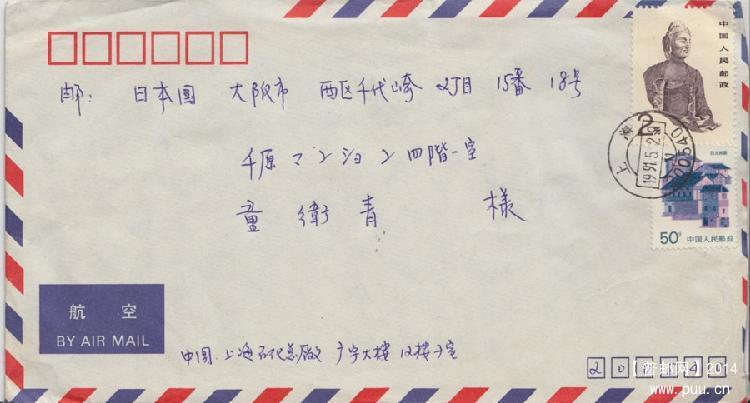 中国人民邮政
邮: 日本国 大阪市 西区千代崎 2丁目 15番 18号
千原マンション四階一室
童衛青 様
上海
1991.5.2
50分 中国人民邮政
航空
BY AIR MAIL
中国.上海石化总厂
新邮网 2014
www.puu.cn